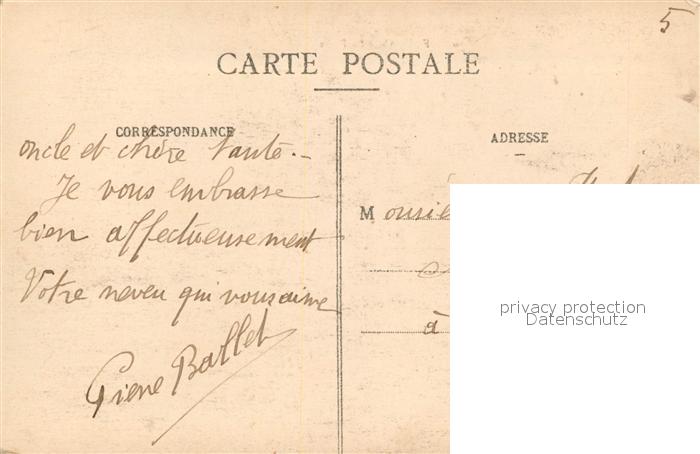 5
CARTE POSTALE
CORRESPONDANCE
ADRESSE
oncle et chère tante.-
Je vous embrasse
bien affectueusement
Votre neveu qui vous aime
Pierre Ballet
Monsie
à
privacy protection
Datenschutz